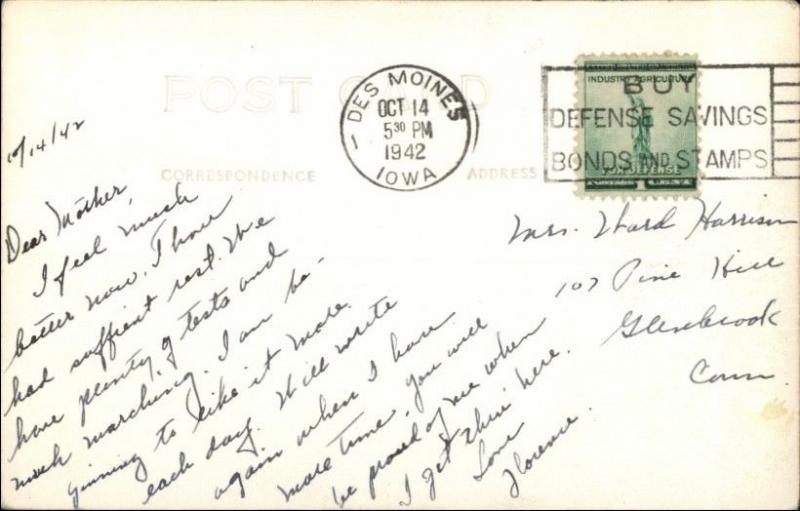 POST CARD
CORRESPONDENCE
ADDRESS
DES MOINES
OCT 14
5 30 PM
1942
IOWA
INDUSTRY AGRICULTURE
FOR DEFENSE
1
BUY
DEFENSE SAVINGS
BONDS AND STAMPS
10/14/42
Dear Mother,
I feel much
better now. I have
had suffient rest. We
have plenty of tests and
much marching. I am be-
ginning to like it more
each day. Will write
again when I have
more time. You will
be proud of me when
I get thru here.
Love
Florence.
Mrs. Ward Harrison
107 Pine Hill
Glenbrook
Conn.